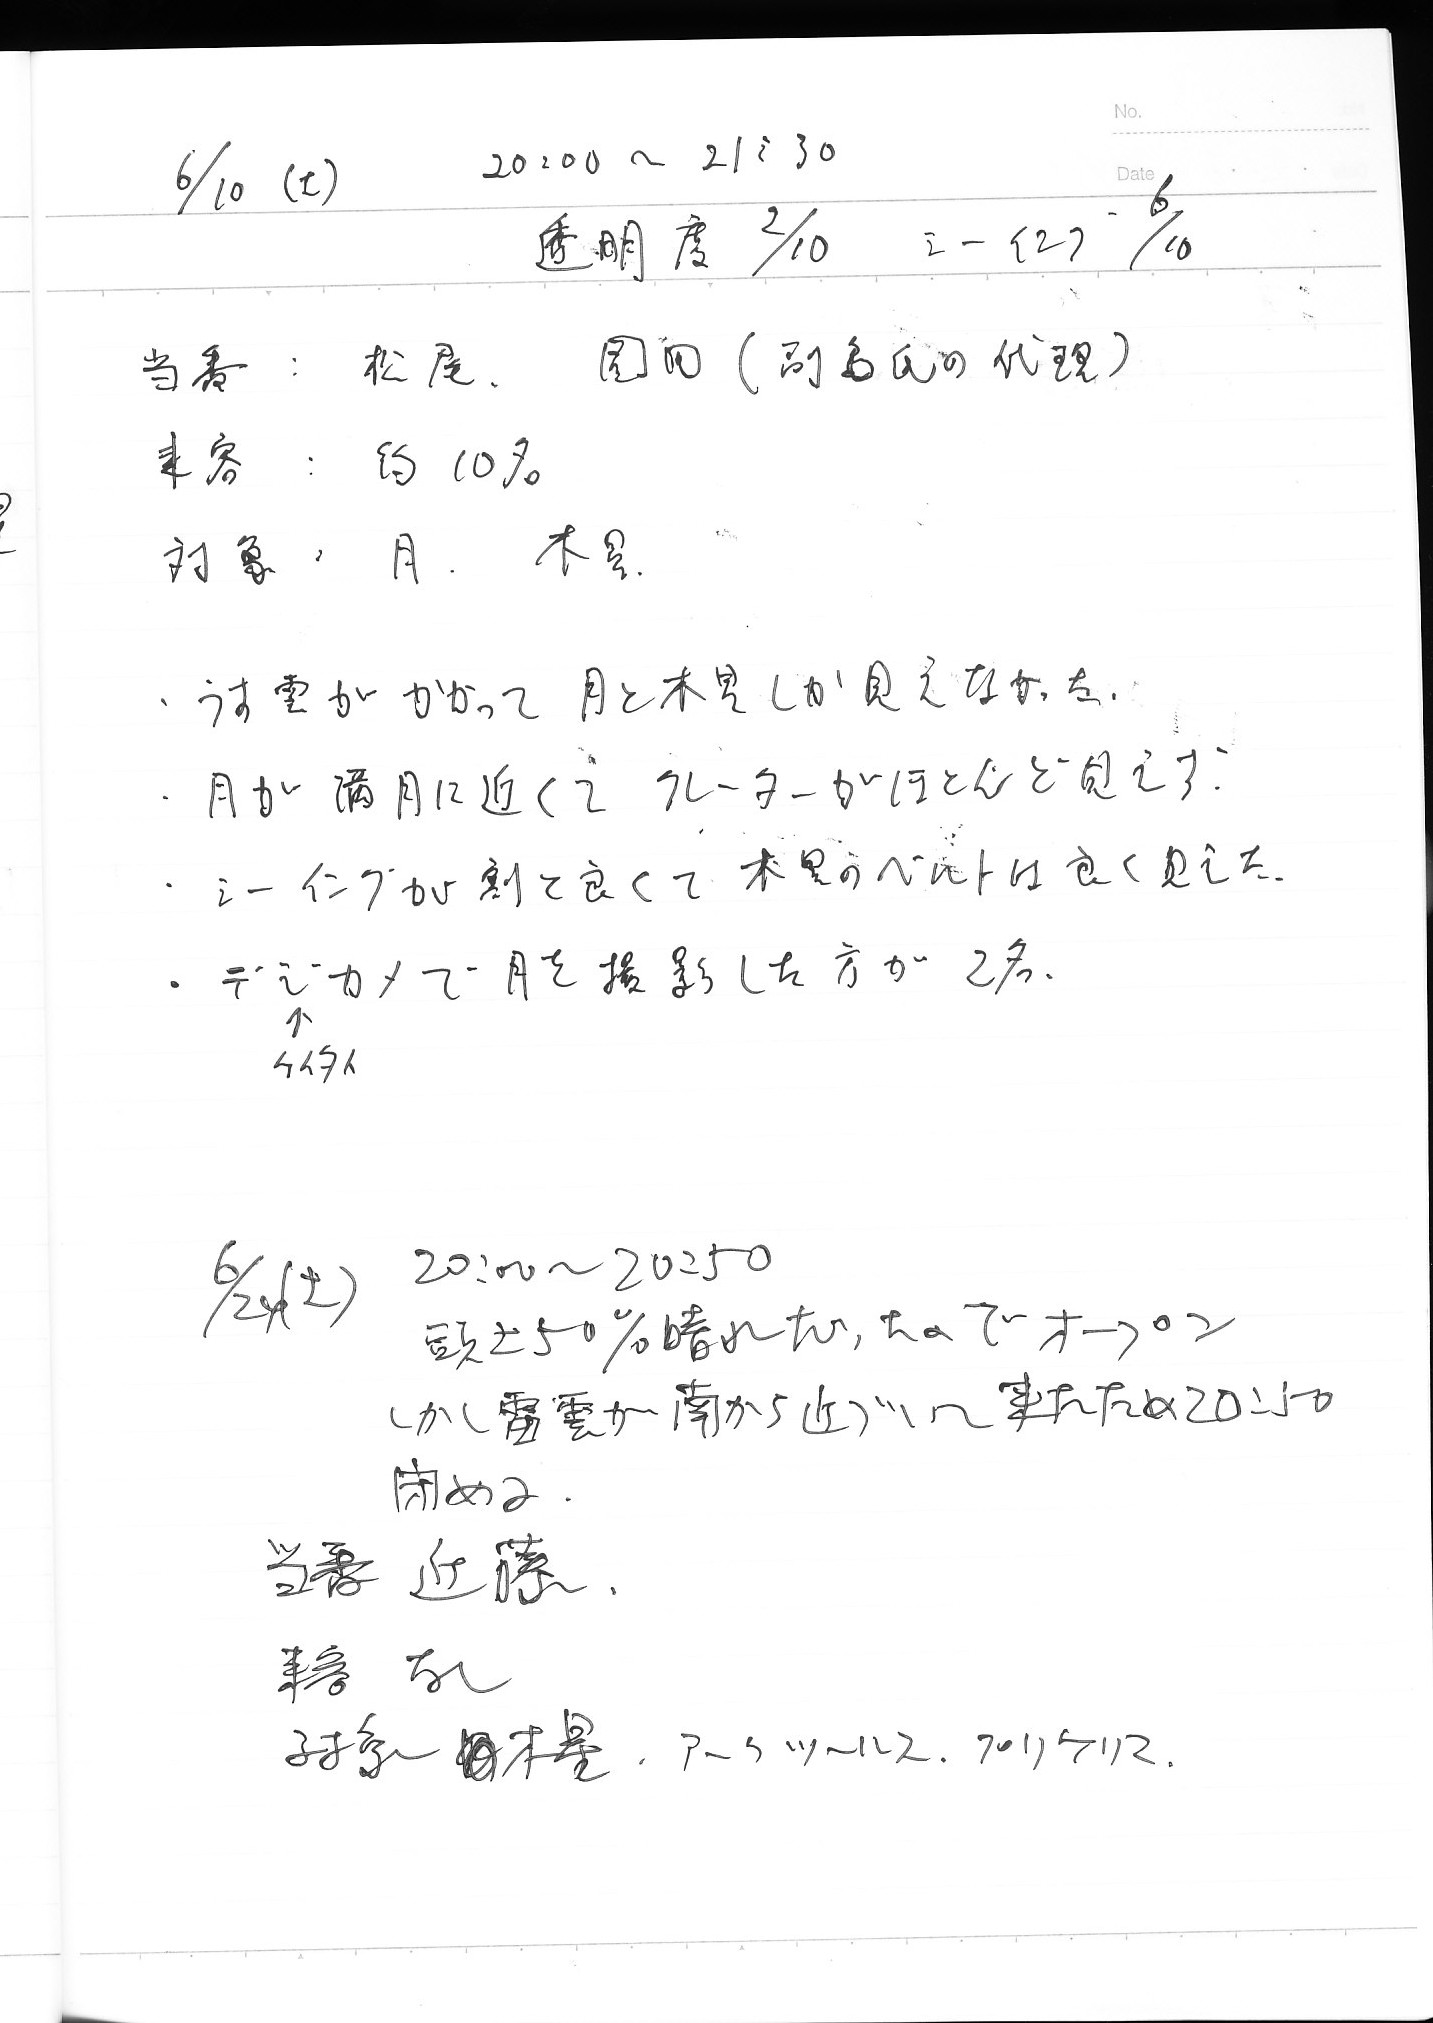 No.
6/10 (土) 20:00 ~ 21:30
Date
透明度 2/10 シーイング 6/10
当番: 松尾. 園田 (副島氏の代理)
来客: 約10名
対象: 月. 木星.
・うす雲がかかって月と木星しか見えなかった.
・月が満月に近くてクレーターがほとんど見えず.
・シーイングが割と良くて木星のベルトは良く見えた.
・デジカメで月を撮影した方が2名.
↑
ケイタイ
6/24(土) 20:00~20:50
頭上50%晴れたが, オープン
しかし雷雲が南から近づいて来たため20:50
閉める.
当番 近藤.
来客 なし
対象 木星. アークツールス. プロリケリマ.